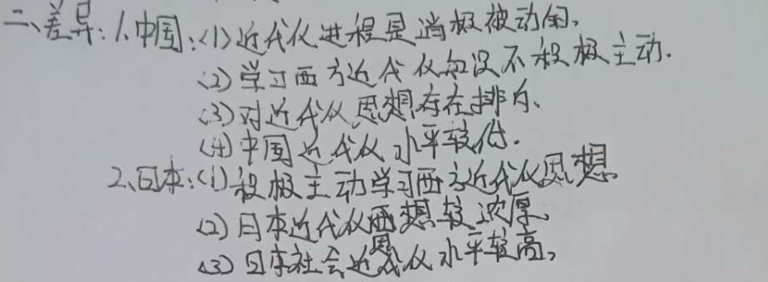 二、差异:1.中国:(1)近代化进程是消极被动的,
(2)学习西方近代化知识不积极主动.
(3)对近代化思想存在排斥、
(4)中国近代化水平较低.
2、日本:(1)积极主动学习西方近代化思想
(2)日本近代化思想较浓厚、
(3)日本社会近代化水平较高,